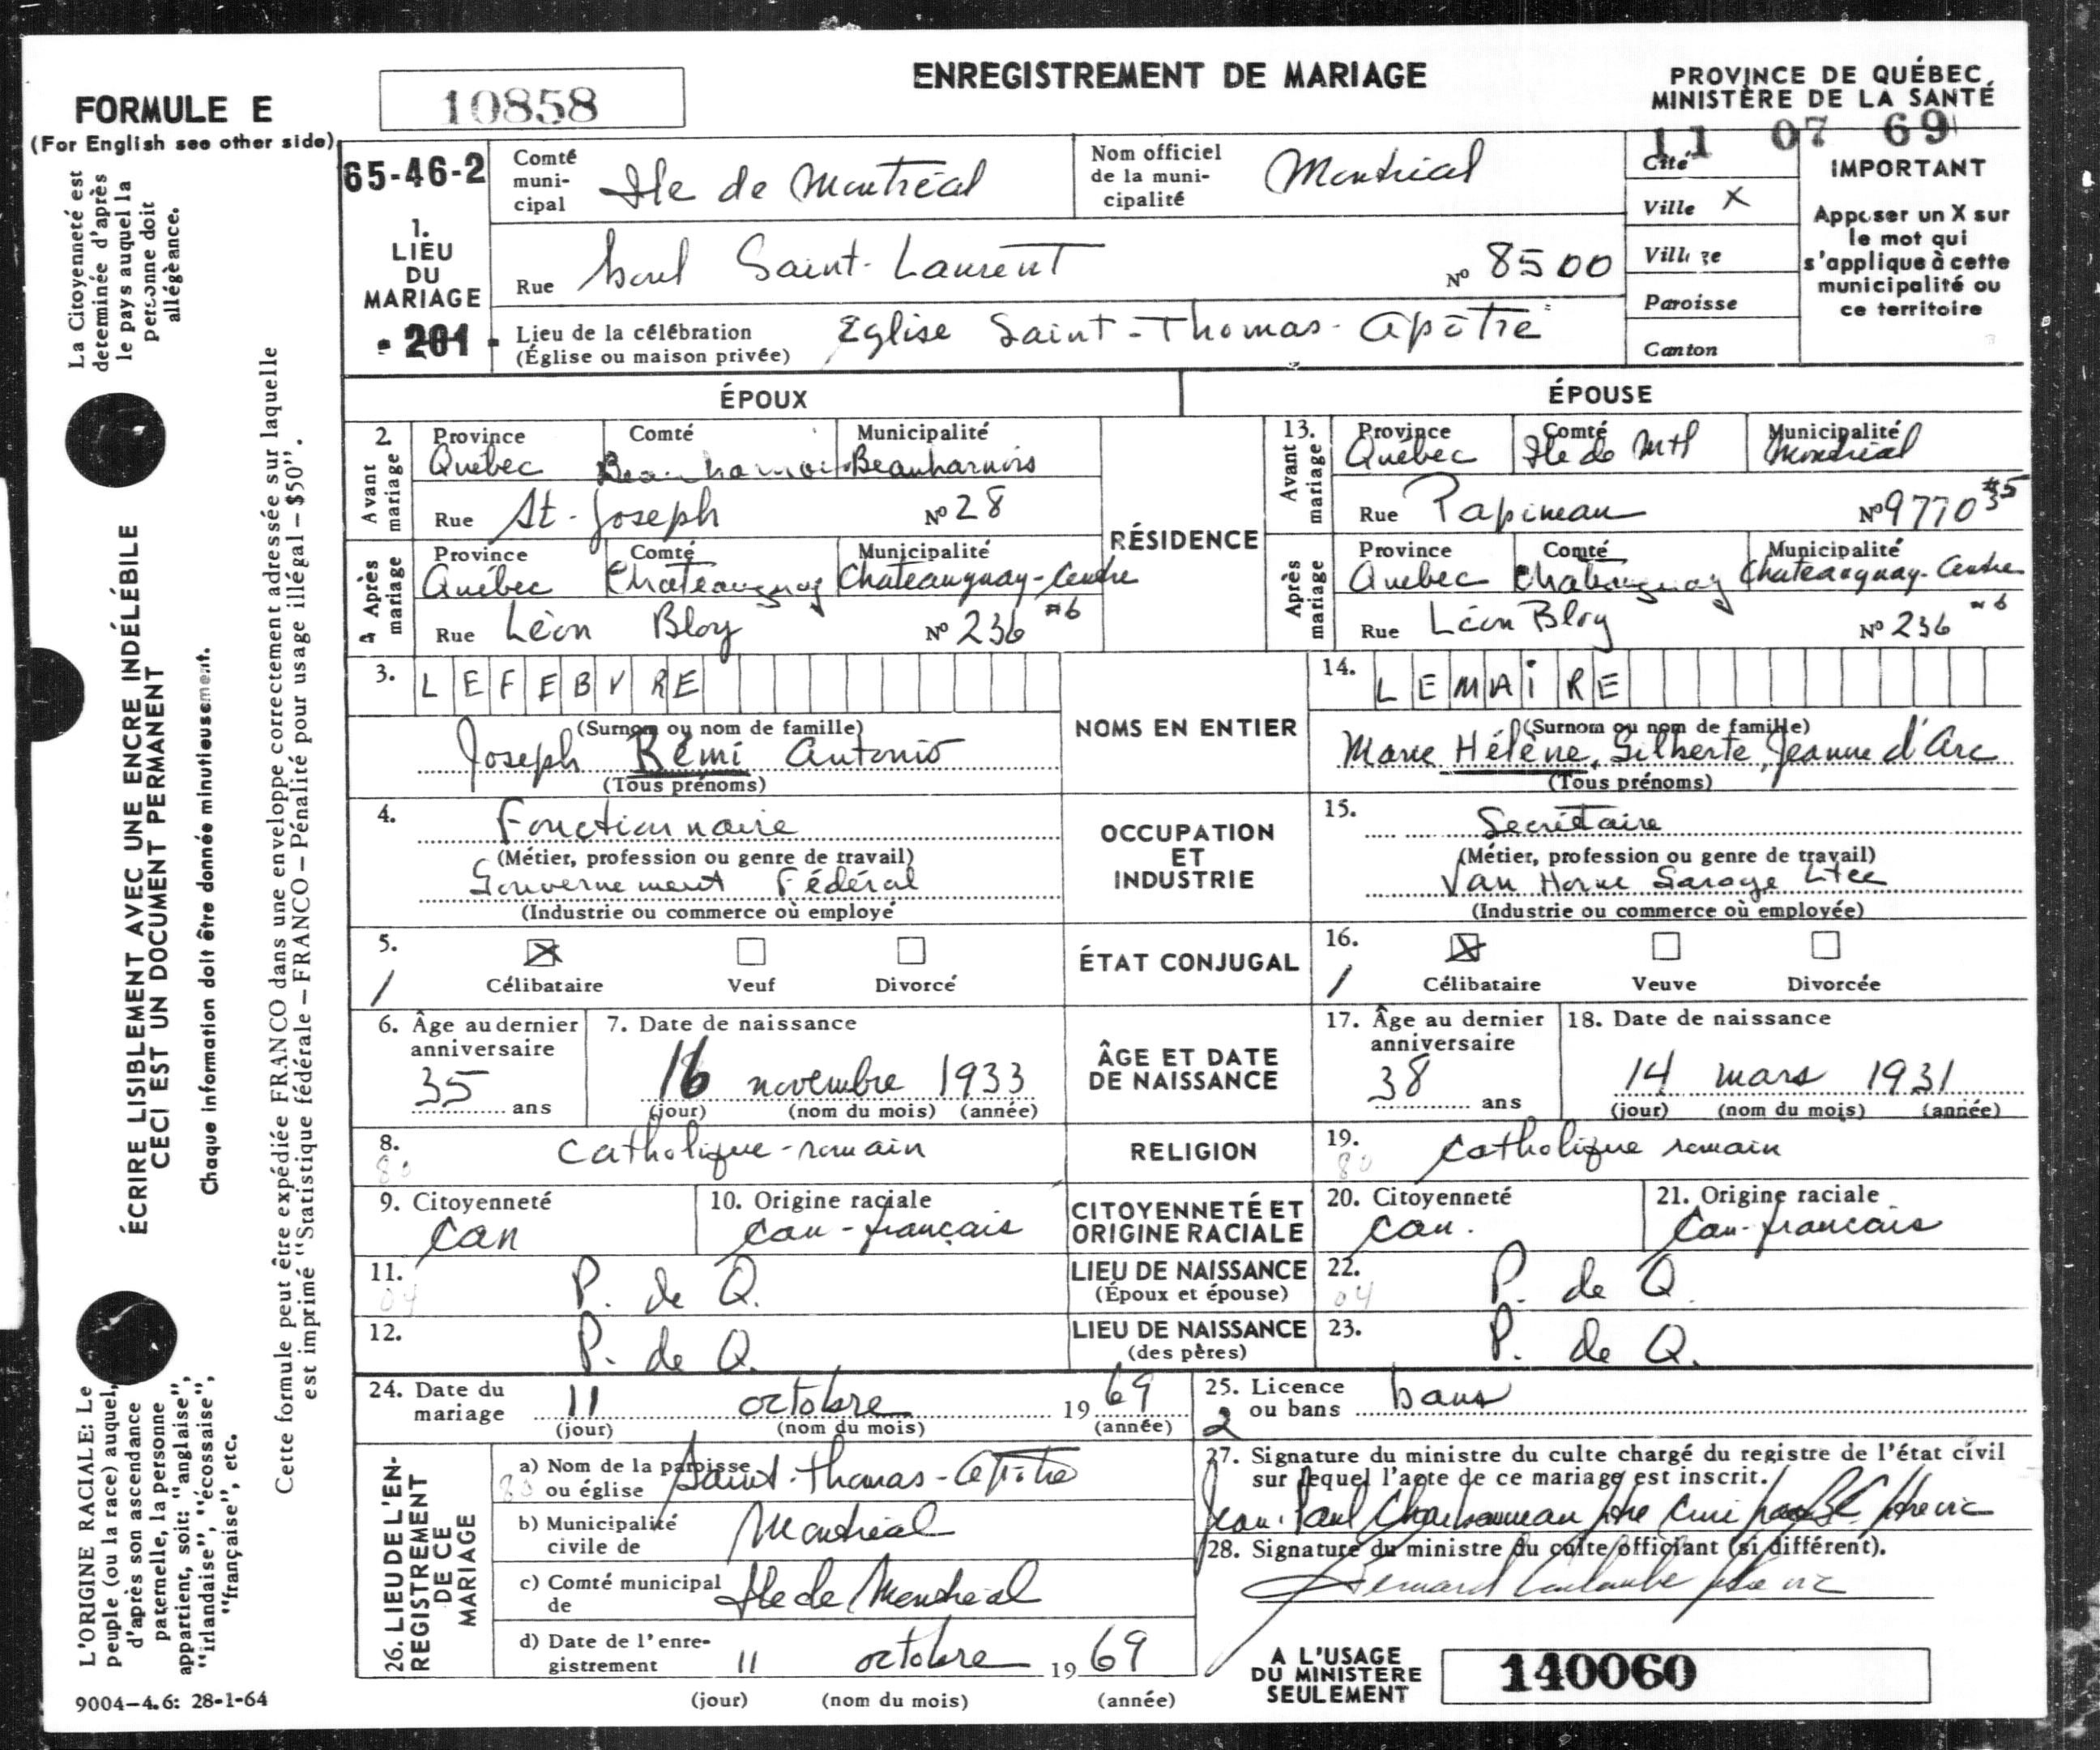 ENREGISTREMENT DE MARIAGE
PROVINCE DE QUÉBEC
MINISTÈRE DE LA SANTÉ
11 07 69
FORMULE E
(For English see other side)
10858
65-46-2
1.
LIEU
DU
MARIAGE
- 201 -
Comté municipal Ile de Montréal
Nom officiel de la municipalité Montréal
Rue boul Saint-Laurent No 8500
Lieu de la célébration
(Église ou maison privée) Eglise Saint-Thomas-apôtre
Cité
Ville X
Village
Paroisse
Canton
IMPORTANT
Apposer un X sur
le mot qui
s'applique à cette
municipalité ou
ce territoire
La Citoyenneté est
determinée d'après
le pays auquel la
personne doit
allégèance.
ÉCRIRE LISIBLEMENT AVEC UNE ENCRE INDÉLÉBILE
CECI EST UN DOCUMENT PERMANENT
Chaque information doit être donnée minutieusement.
Cette formule peut être expédiée FRANCO dans une enveloppe correctement adressée sur laquelle
est imprimé "Statistique fédérale – FRANCO – Pénalité pour usage illégal – $50".
L'ORIGINE RACIALE: Le
peuple (ou la race) auquel,
d'après son ascendance
paternelle, la personne
appartient, soit: "anglaise",
"irlandaise", "écossaise",
"française", etc.
ÉPOUX
ÉPOUSE
2. Avant mariage
Province Québec Comté Beauharnois Municipalité Beauharnois
Rue St-Joseph No 28
4 Après mariage
Province Québec Comté Chateauguay Municipalité Chateauguay-Centre
Rue Léon Bloy No 236 #6
RÉSIDENCE
13. Avant mariage
Province Québec Comté Ile de Mtl Municipalité Montréal
Rue Papineau No 9770 #5
Après mariage
Province Québec Comté Chateauguay Municipalité Chateauguay-Centre
Rue Léon Bloy No 236 #6
3. LEFEBVRE
(Surnom ou nom de famille)
Joseph Rémi Antonio
(Tous prénoms)
NOMS EN ENTIER
14. LEMAIRE
(Surnom ou nom de famille)
Marie Hélène, Gilberte, Jeanne d'Arc
(Tous prénoms)
4. Fonctionnaire
(Métier, profession ou genre de travail)
Gouvernement Fédéral
(Industrie ou commerce où employé
OCCUPATION
ET
INDUSTRIE
15. Secrétaire
(Métier, profession ou genre de travail)
Van Horne Garage Ltée
(Industrie ou commerce où employée)
5. X Célibataire Veuf Divorcé
1
ÉTAT CONJUGAL
16. X Célibataire Veuve Divorcée
1
6. Âge au dernier anniversaire
35 ans
7. Date de naissance
16 novembre 1933
(jour) (nom du mois) (année)
ÂGE ET DATE
DE NAISSANCE
17. Âge au dernier anniversaire
38 ans
18. Date de naissance
14 mars 1931
(jour) (nom du mois) (année)
8. 80 catholique-romain
RELIGION
19. 80 catholique romain
9. Citoyenneté
Can
10. Origine raciale
Can-français
CITOYENNETÉ ET
ORIGINE RACIALE
20. Citoyenneté
Can.
21. Origine raciale
Can-francais
11. 04 P. de Q.
LIEU DE NAISSANCE
(Époux et épouse)
22. 04 P. de Q
12. P. de Q.
LIEU DE NAISSANCE
(des pères)
23. P. de Q.
24. Date du mariage 11 octobre 1969
(jour) (nom du mois) (année)
25. Licence ou bans bans
2
26. LIEU DE L'ENREGISTREMENT
DE CE
MARIAGE
a) Nom de la paroisse
80 ou église Saint-Thomas-apôtre
b) Municipalité civile de Montréal
c) Comté municipal de Ile de Montréal
d) Date de l'enregistrement 11 octobre 1969
(jour) (nom du mois) (année)
27. Signature du ministre du culte chargé du registre de l'état civil
sur lequel l'acte de ce mariage est inscrit.
Jean-Paul Charbonneau ptre curé
28. Signature du ministre du culte officiant (si différent).
Bernard Coulombe ptre vic
A L'USAGE
DU MINISTERE
SEULEMENT
140060
9004–4.6: 28-1-64